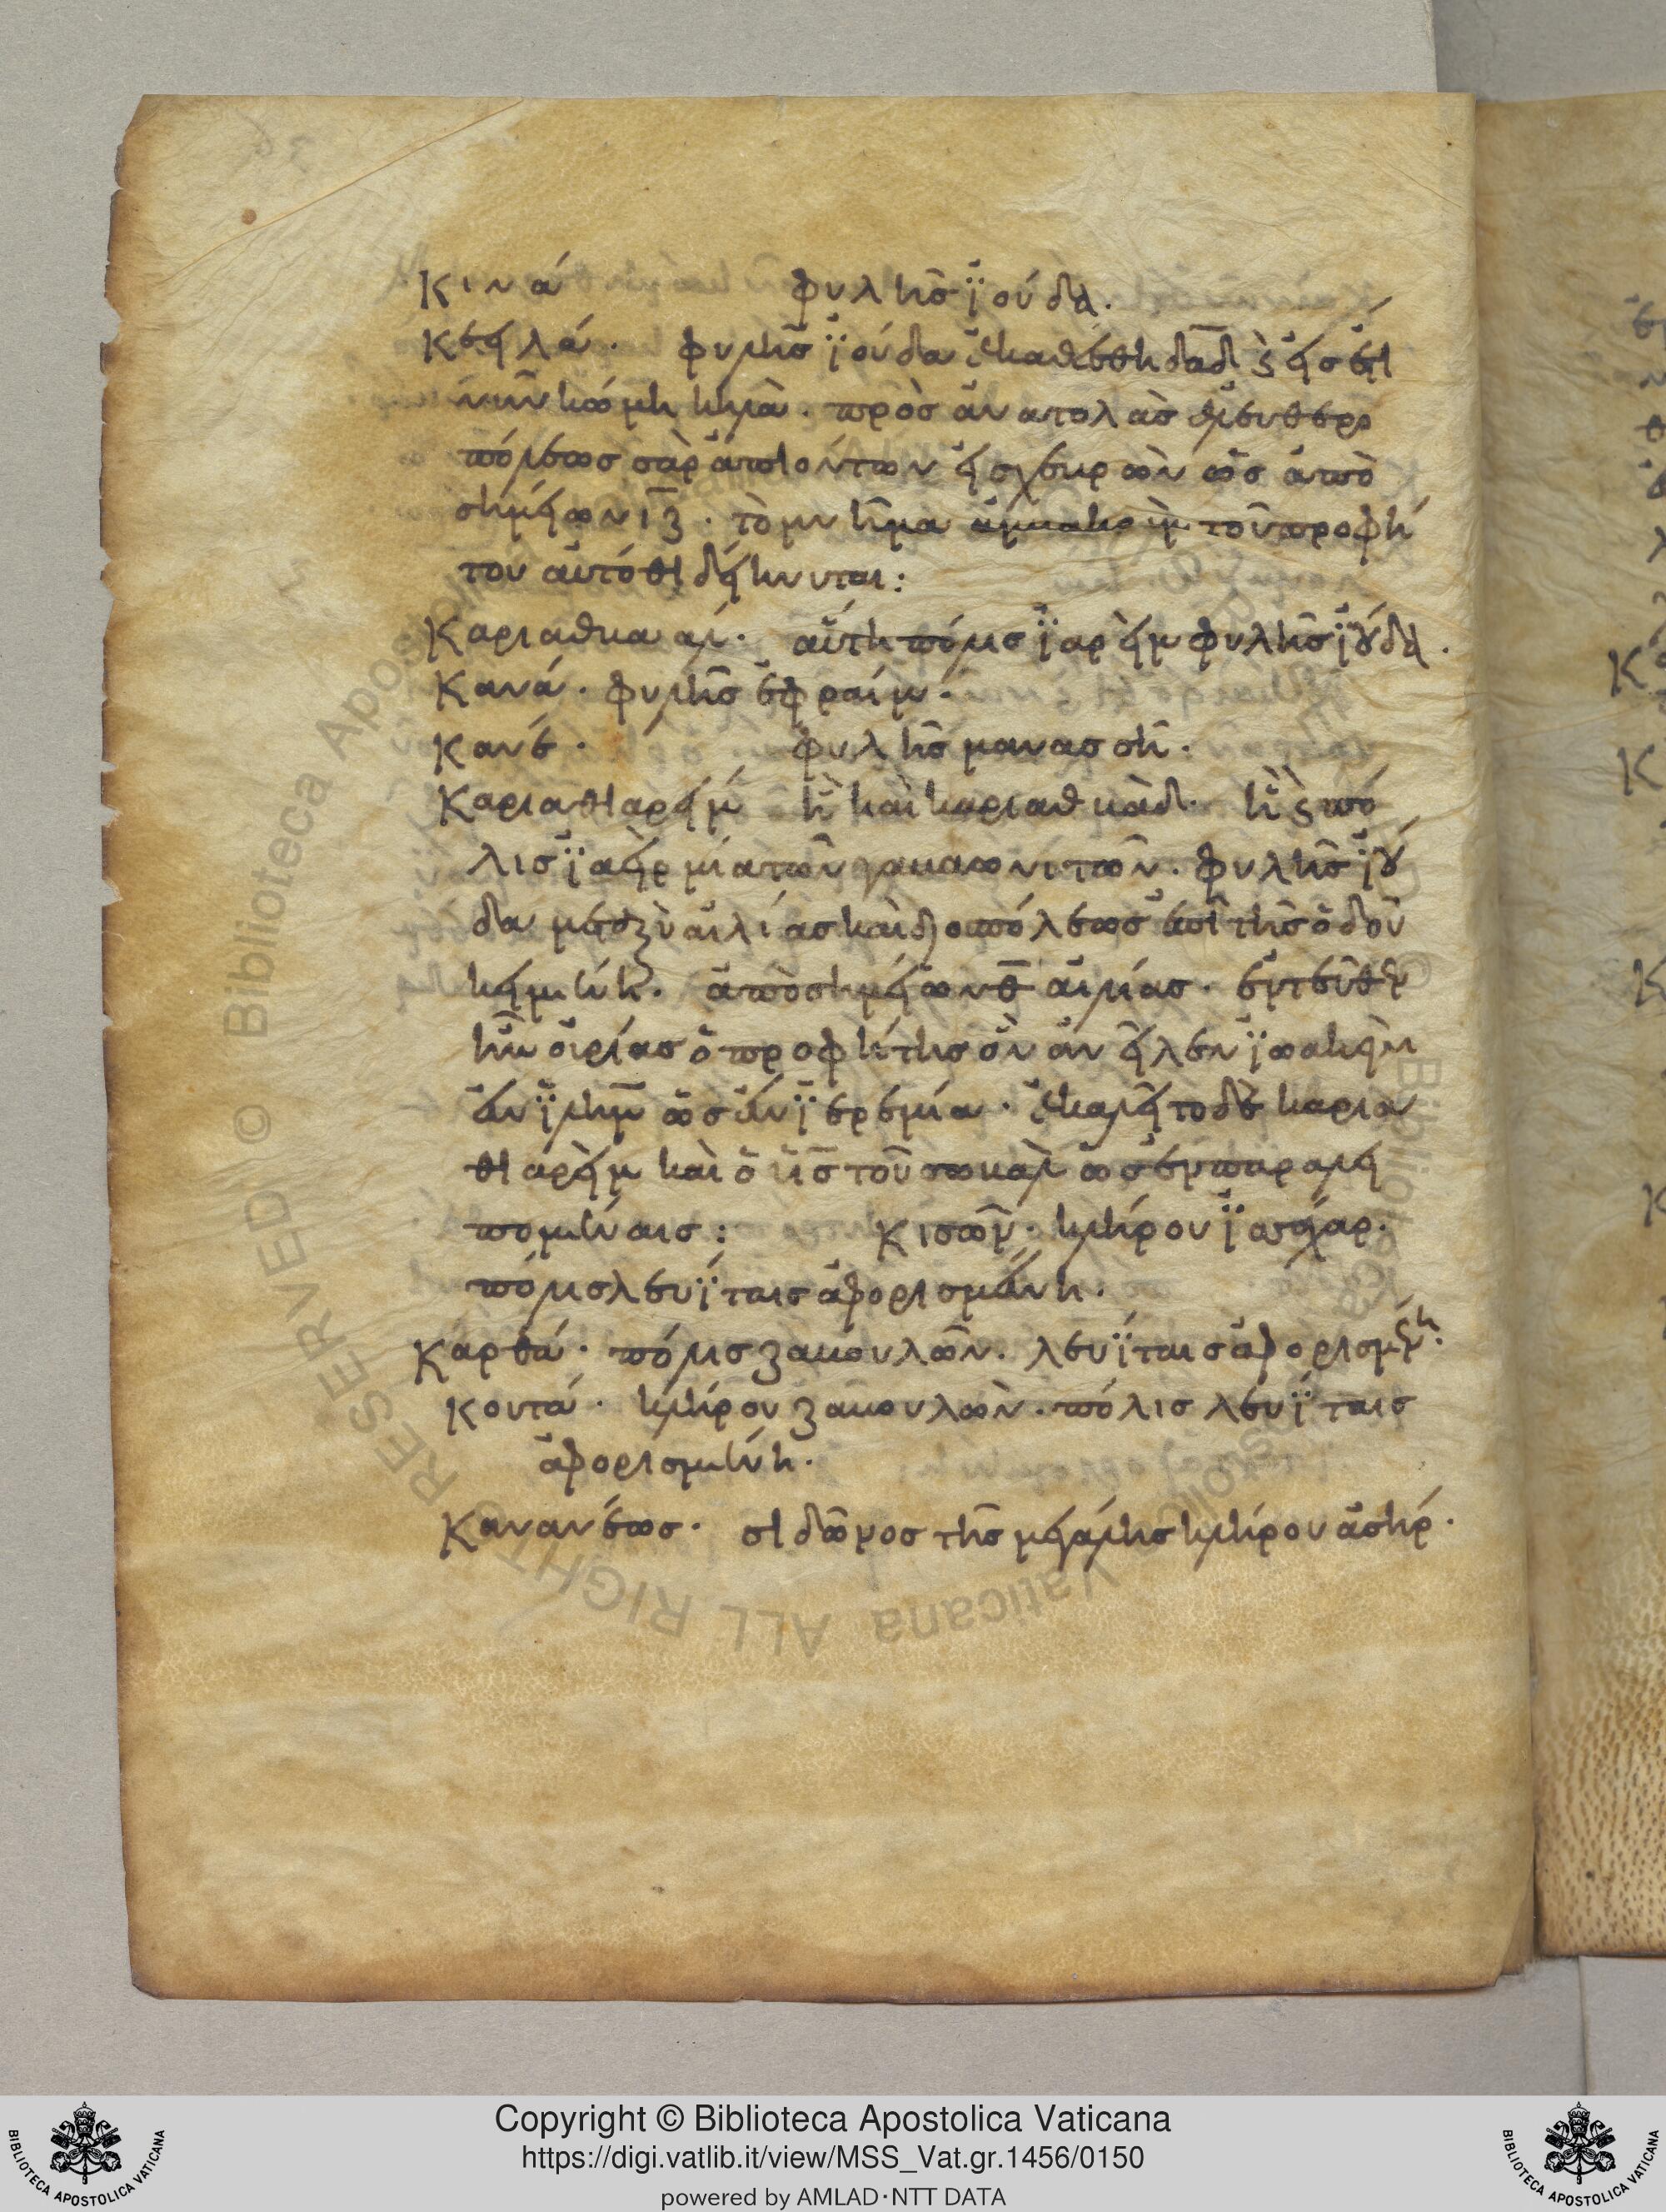 Κινά φυλῆσ ϊούδα.
Κεειλά. φυλῆσ ϊούδα ἐκαθέσθη δαδ καὶ εἰσ ἔτι
νῦν κώμη κηλὰ. πρὸσ ἀνατολὰσ ἐλευθερο
πόλεωσ
σημείων ιζ. τὸ μνῆμα ἀμβακοὺμ τοῦ προφή
του αὐτόθι δείκνυται:
Καριαθβααλ. αὕτη πόλισ ϊαρεὶμ φυλῆσ ϊούδα.
Κανά. φυλῆσ ἐφραίμ.
Κανέ. φυλῆσ μανασσῆ.
Καριαθιαρείμ ἡ καὶ καριαθβάαλ. ἡ καὶ πό
λισ ϊαεὶρ μία τῶν γαβαωνιτῶν. φυλῆσ ϊού
δα μεταξὺ αἰλίασ καὶ διοσπόλεωσ ἐπὶ τῆσ ὁδοῦ
κειμένη. ἀπὸ σημείων θ αἰλίασ. ἐντεῦθεν
ἦν οὐρίασ ὁ προφήτησ ὃν ἀνεῖλεν ϊωακεὶμ
ἐν ϊλημ ὡσ ἐν ϊερεμία. ἐκαλεῖτο δὲ καρια
θιαρεὶμ καὶ ὁ υἱσ τοῦ σωβὰλ ὡσ ἐν παραλει
πομέναισ: Κισών. κλήρου ϊσαχάρ.
πόλισ λευΐταισ ἀφορισμένη.
Καρθά. πόλισ ζαβουλῶν. λευΐταισ ἀφορισμένη.
Κοντά. κλήρου ζαβουλὼν. πόλισ λευΐταισ
ἀφορισμένη.
Κανανέωσ. σιδῶνοσ τῆσ μεγάλησ κλήρου ἀσήρ.
Copyright © Biblioteca Apostolica Vaticana
https://digi.vatlib.it/view/MSS_Vat.gr.1456/0150
powered by AMLAD·NTT DATA
BIBLIOTECA APOSTOLICA VATICANA
BIBLIOTECA APOSTOLICA VATICANA